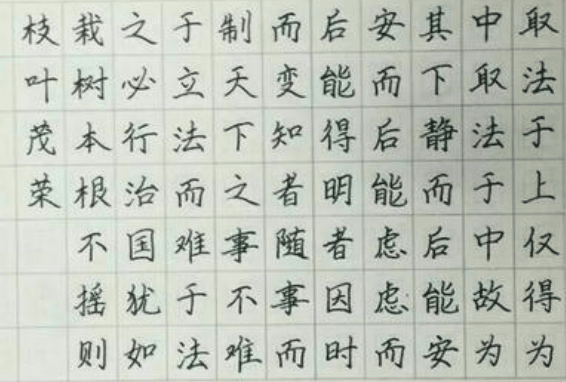 取法于上仅得为
中取法于中故为
其下静而后能安
安而后能虑虑而
后能得明者因时
而变知者随事而
制天下之事不难
于立法而难于法
之必行治国犹如
栽树本根不摇则
枝叶茂荣